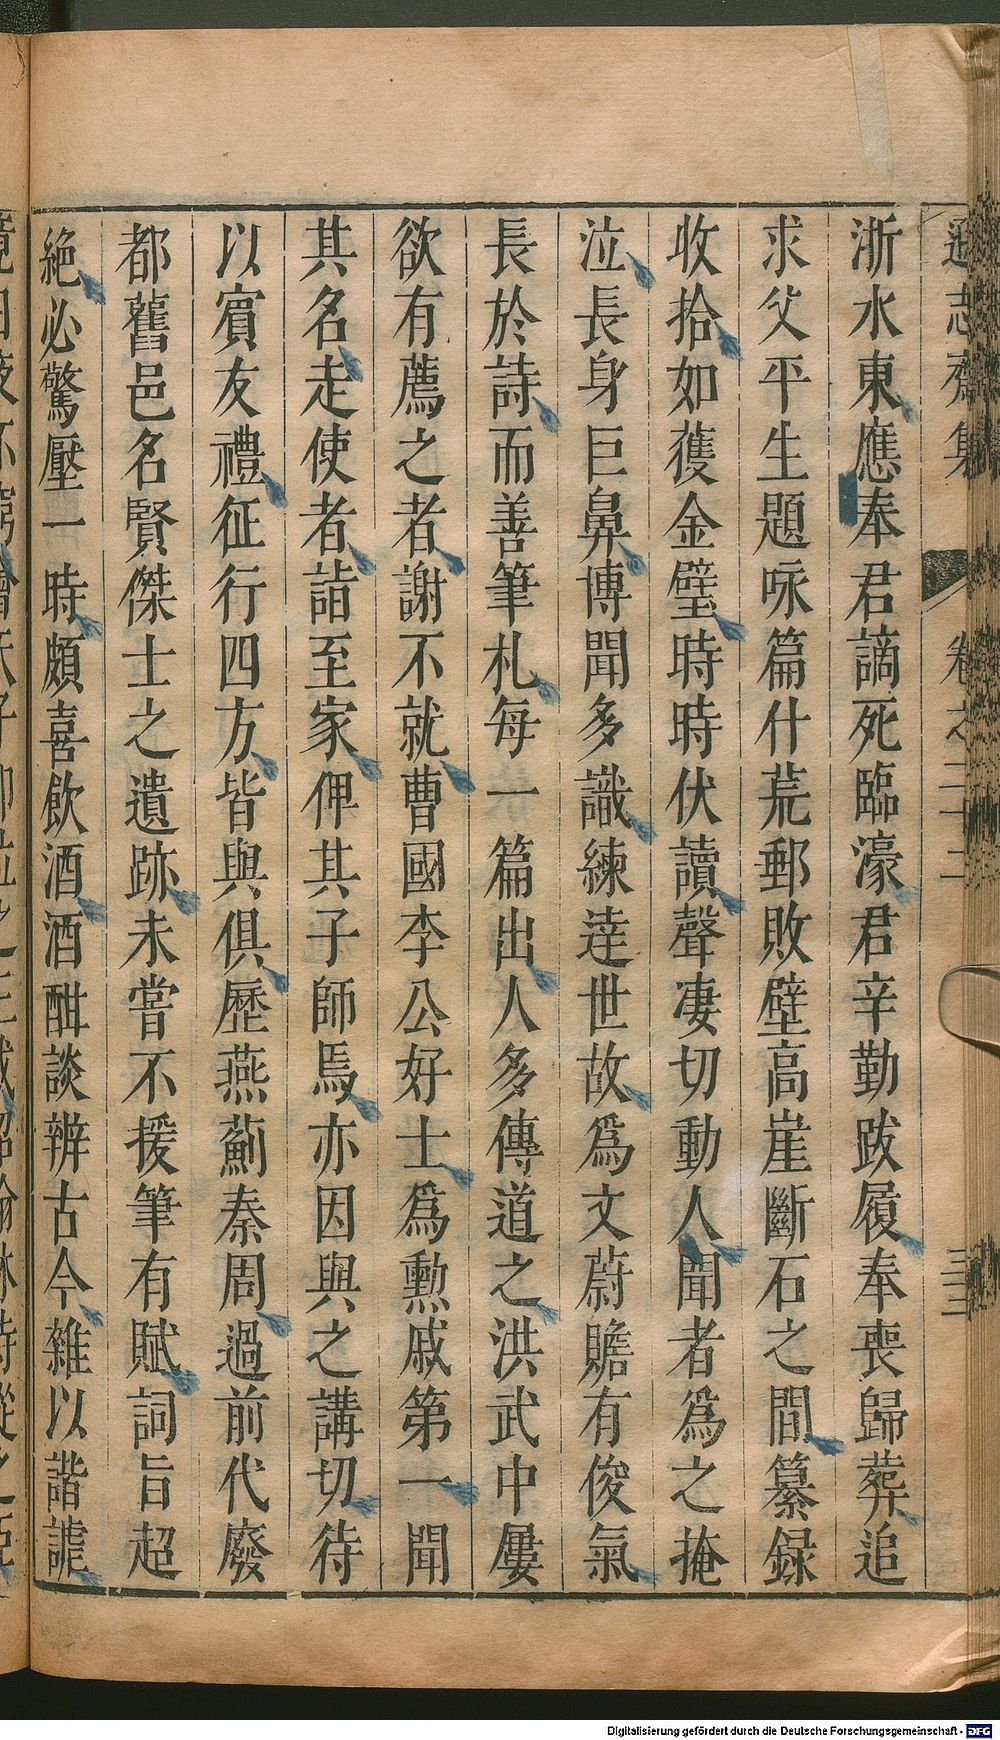 遜志齋集 卷之二十二 三三
浙水東應奉君謫死臨濠君辛勤跋履奉喪歸葬追
求父平生題咏篇什荒郵敗壁高崖斷石之間纂録
收拾如獲金璧時時伏讀聲凄切動人聞者爲之掩
泣長身巨鼻博聞多識練達世故爲文蔚贍有俊氣
長於詩而善筆札每一篇出人多傳道之洪武中屢
欲有薦之者謝不就曹國李公好士爲勲戚第一聞
其名走使者詣至家俾其子師焉亦因與之講切待
以賓友禮征行四方皆與俱歷燕薊秦周過前代廢
都舊邑名賢傑士之遺跡未嘗不援筆有賦詞旨超
絶必驚壓一時頗喜飲酒酒酣談辨古今雜以諧謔
Digitalisierung gefördert durch die Deutsche Forschungsgemeinschaft - DFG